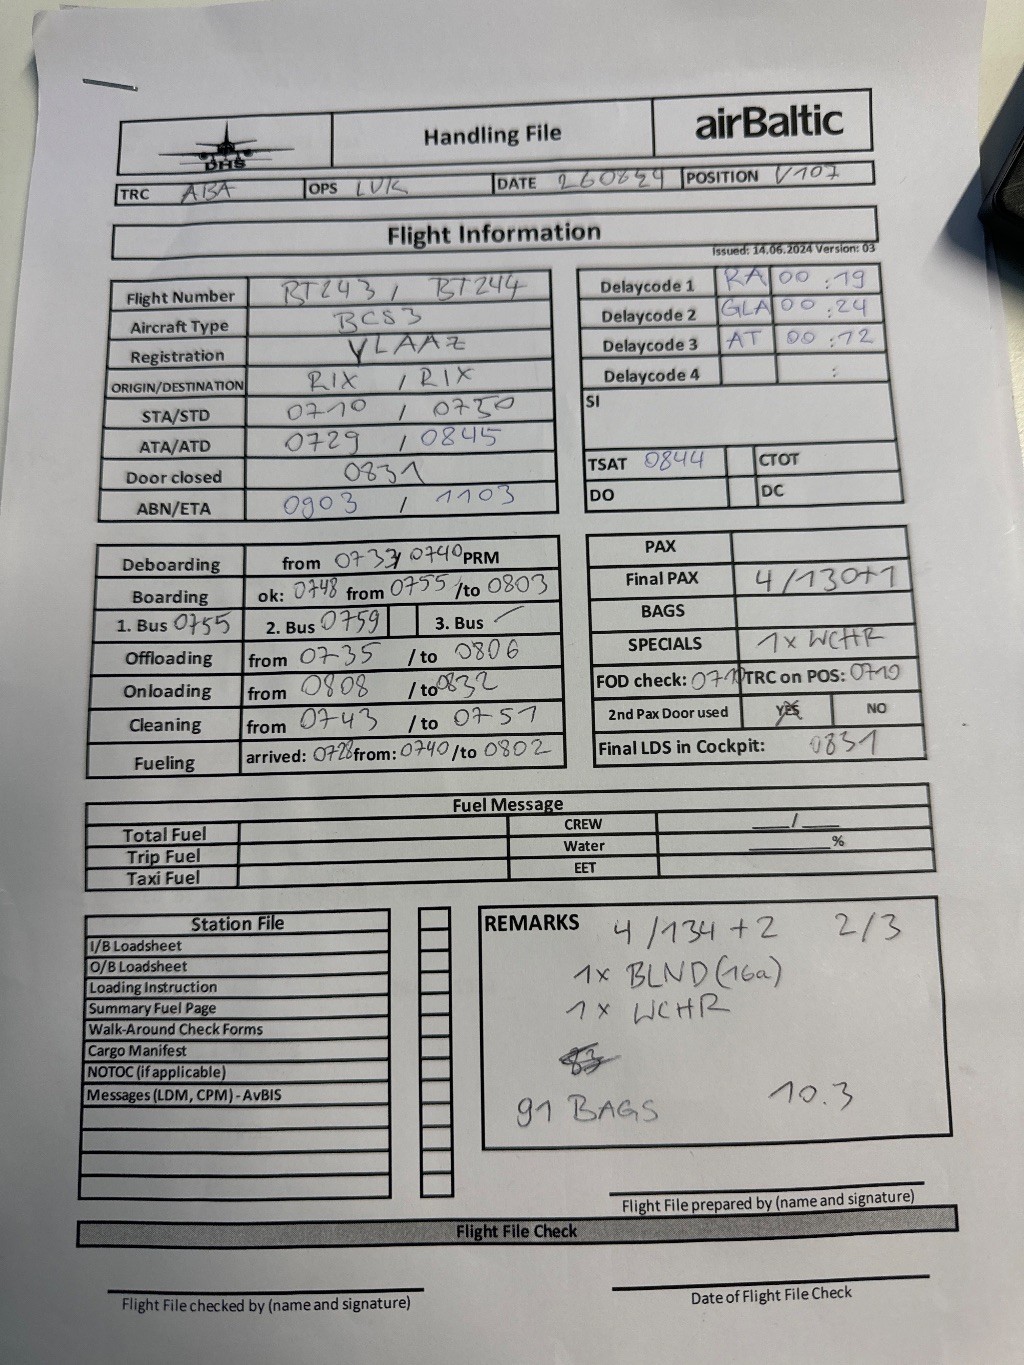 DHS Handling File airBaltic
TRC ABA OPS LUK DATE 260824 POSITION V107
Flight Information
Issued: 14.06.2024 Version: 03
Flight Number BT243 / BT244
Aircraft Type BCS3
Registration YLAAZ
ORIGIN/DESTINATION RIX / RIX
STA/STD 0710 / 0750
ATA/ATD 0729 / 0845
Door closed 0831
ABN/ETA 0903 / 1103
Delaycode 1 RA 00 :19
Delaycode 2 GLA 00 :24
Delaycode 3 AT 00 :12
Delaycode 4 :
SI
TSAT 0844 CTOT
DO DC
Deboarding from 0733/ 0740 PRM
Boarding ok: 0748 from 0755 /to 0803
1. Bus 0755 2. Bus 0759 3. Bus
Offloading from 0735 /to 0806
Onloading from 0808 /to 0832
Cleaning from 0743 /to 0751
Fueling arrived: 0728 from: 0740 /to 0802
PAX
Final PAX 4/130+1
BAGS
SPECIALS 1x WCHR
FOD check: 0710 TRC on POS: 0710
2nd Pax Door used YES NO
Final LDS in Cockpit: 0831
Fuel Message
Total Fuel CREW ___/___
Trip Fuel Water ________%
Taxi Fuel EET
Station File
I/B Loadsheet
O/B Loadsheet
Loading Instruction
Summary Fuel Page
Walk-Around Check Forms
Cargo Manifest
NOTOC (if applicable)
Messages (LDM, CPM) - AvBIS
REMARKS 4/134+2 2/3
1x BLND (16a)
1x WCHR
91 BAGS 10.3
Flight File prepared by (name and signature)
Flight File Check
Flight File checked by (name and signature)
Date of Flight File Check